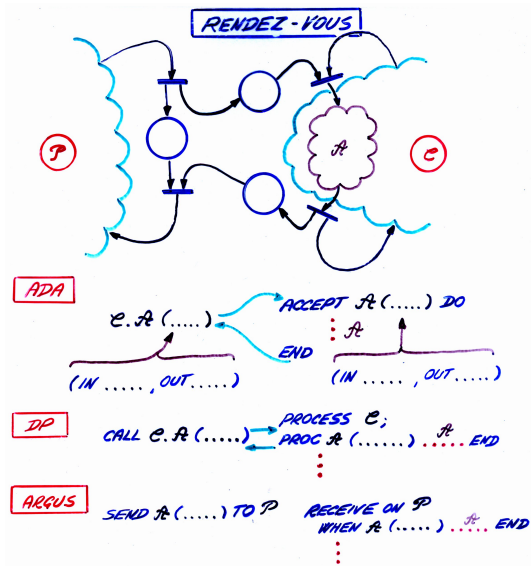 RENDEZ-VOUS
P
A
C
ADA
C.A (.....)
ACCEPT A (.....) DO
A
END
(IN ....., OUT .....)
(IN ....., OUT .....)
DP
CALL C.A (.....)
PROCESS C;
PROC A (.......) A ...... END
ARGUS
SEND A (.....) TO P
RECEIVE ON P
WHEN A (.....) A ...... END